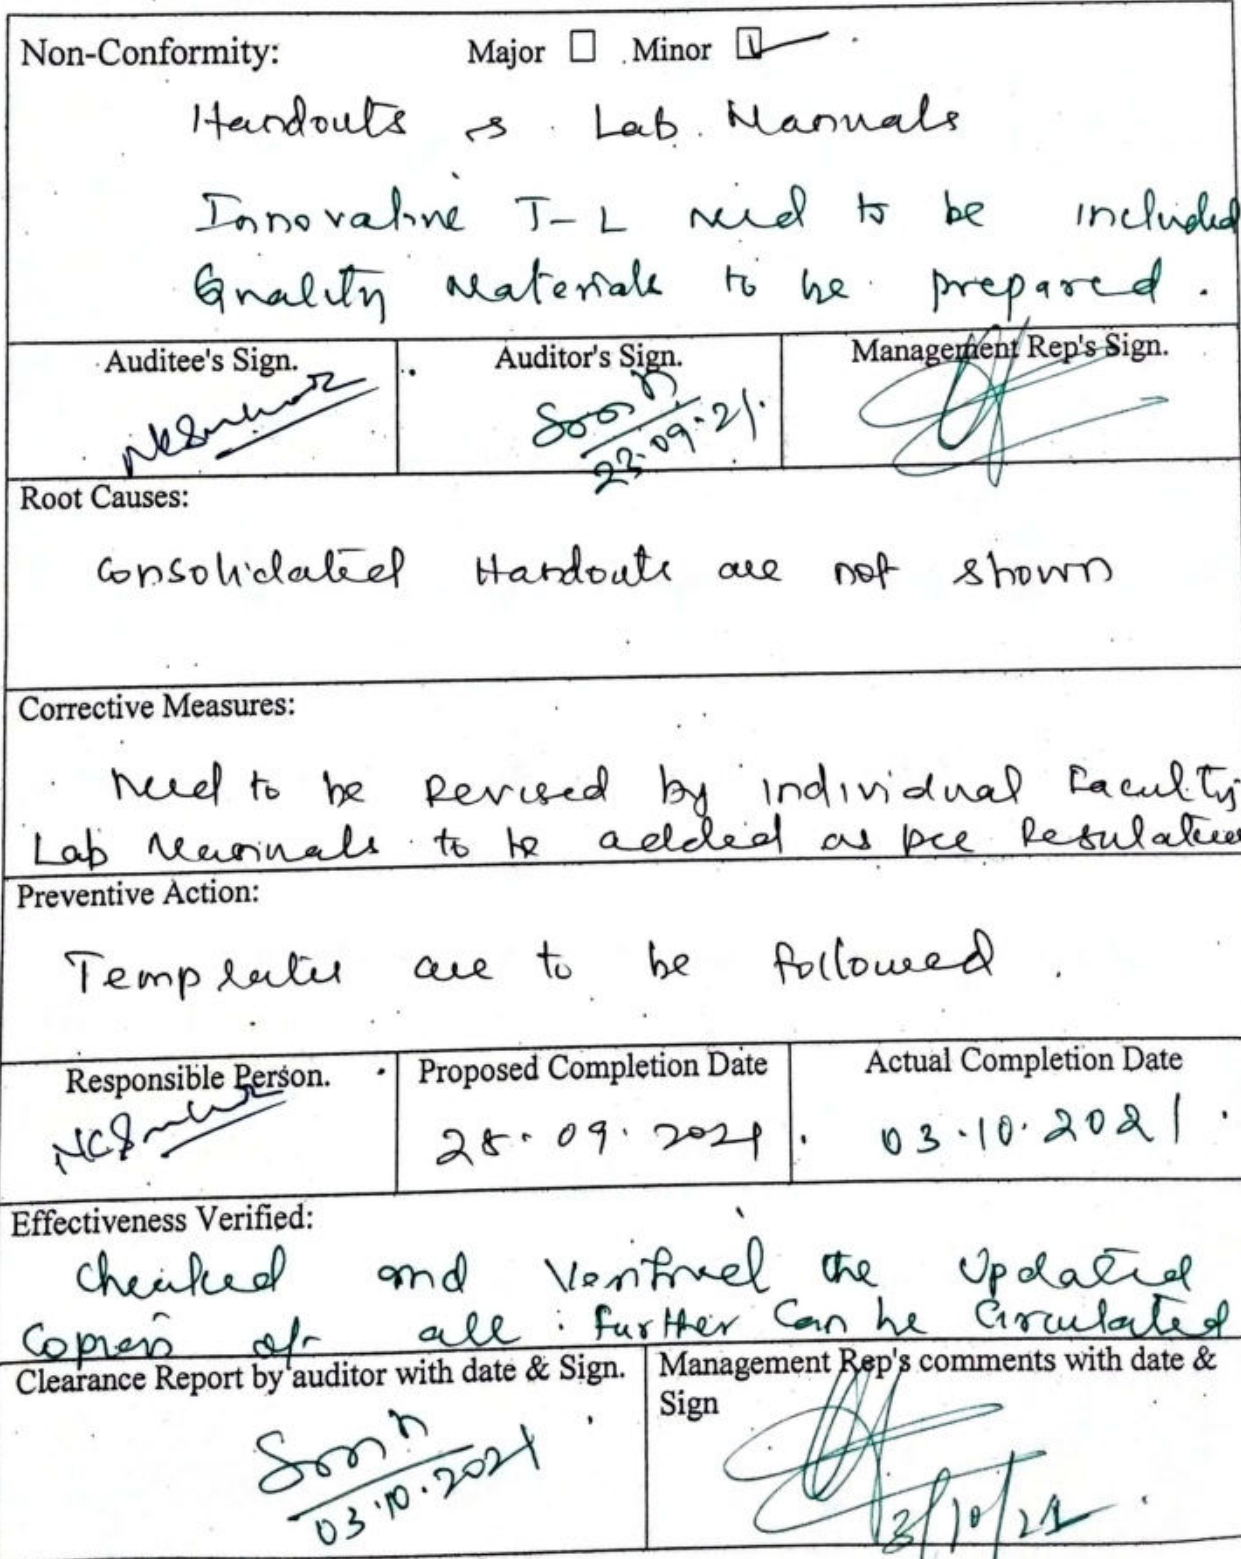 Non-Conformity: Major ☐ Minor ☑
Handouts & Lab Manuals
Innovative T-L need to be included
Quality Materials to be prepared.
Auditee's Sign. Auditor's Sign. Management Rep's Sign.
23.09.21.
Root Causes:
Consolidated Handouts are not shown
Corrective Measures:
Need to be Revised by individual Faculty
Lab Manuals to be added as per Regulation
Preventive Action:
Templates are to be followed.
Responsible Person. Proposed Completion Date Actual Completion Date
28.09.2021. 03.10.2021.
Effectiveness Verified:
Checked and Verified the Updated
Copies of all. Further Can be Circulated
Clearance Report by auditor with date & Sign. Management Rep's comments with date &
Sign
03.10.2021
3/10/21